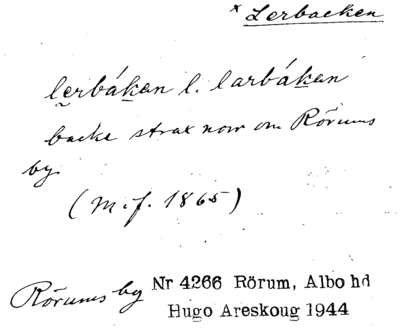 x Lerbacken
lerbákan l. larbákan
backe strax norr om Rörums
by.
(M.f. 1865)
Rörums by Nr 4266 Rörum, Albo hd
Hugo Areskoug 1944